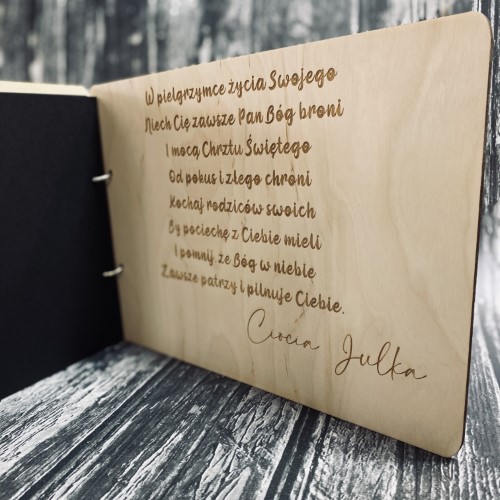 W pielgrzymce życia Swojego
Niech Cię zawsze Pan Bóg broni
I mocą Chrztu Świętego
Od pokus i złego chroni
Kochaj rodziców swoich
By pociechę z Ciebie mieli
I pomnij, że Bóg w niebie
Zawsze patrzy i pilnuje Ciebie.
Ciocia Julka